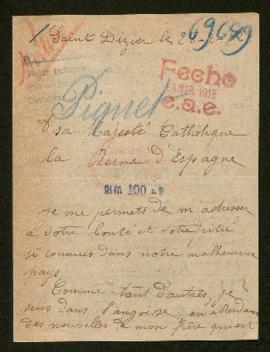 Saint Dizier le 2
69689
Fecho
MAR. 1918
e.a.e.
Piquet
Sa Majesté Catholique
la Reine d'Espagne
OCT 1918
je me permets de m'adresser
à votre bonté et votre pitié
si connues dans notre malheureux
pays.
Comme tant d'autres, je
suis dans l'angoisse en attendant
des nouvelles de mon frère qui est